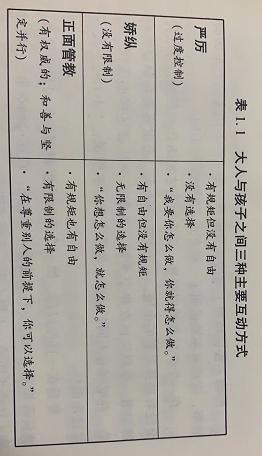 表 1.1 大人与孩子之间三种主要互动方式
严厉
（过度控制）
· 有规矩但没有自由
· 没有选择
· “我要你怎么做，你就得怎么做。”
娇纵
（没有限制）
· 有自由但没有规矩
· 无限制的选择
· “你想怎么做，就怎么做。”
正面管教
（有权威的；和善与坚
定并行）
· 有规矩也有自由
· 有限制的选择
· “在尊重别人的前提下，你可以选择。”